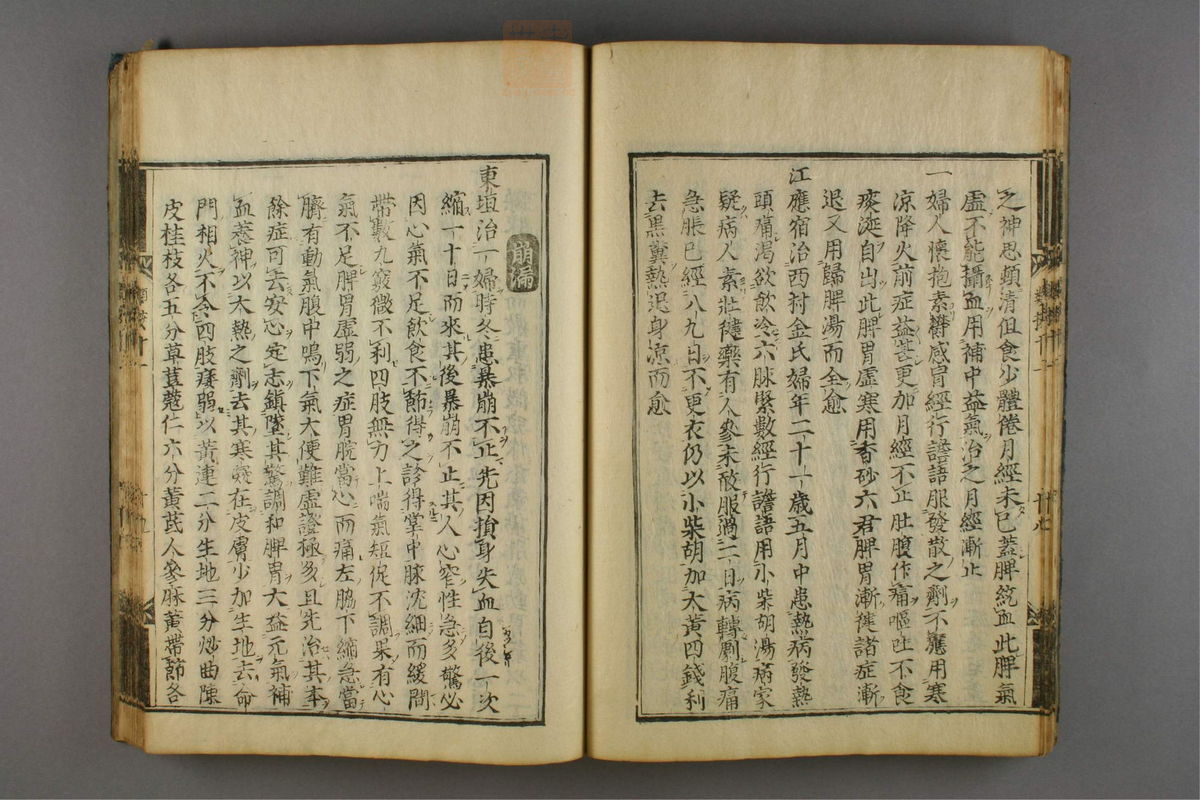 之神思頓清但食少體倦月經未已蓋脾統血此脾氣
虛不能攝血用補中益氣治之月經漸止
一婦人懷抱素欝感冒經行譫語服發散之劑不應用寒
凉降火前症益甚更加月經不止肚腹作痛嘔吐不食
痰涎自出此脾胃虛寒用香砂六君脾胃漸徤諸症漸
退又用歸脾湯而全愈
江應宿治西村金氏婦年二十一歲五月中患熱病發熱
頭痛渴欲飲冷六脉緊數經行譫語用小柴胡湯病家
疑病人素壯徤藥有人參未敢服過二日病轉劇腹痛
急脹已經八九日不更衣仍以小柴胡加大黃四錢利
去黑糞熱退身凉而愈
崩漏
東垣治一婦時冬患暴崩不止先因損身失血自後一次
縮一十日而來其後暴崩不止其人心窄性急多驚必
因心氣不足飲食不節得之診得掌中脉沈細而緩間
帶數九竅微不利四肢無力上喘氣短促不調果有心
氣不足脾胃虛弱之症胃脘當心而痛左脇下縮急當
臍有動氣腹中鳴下氣大便難虛證極多且先治其本
餘症可去安心定志鎮墜其驚調和脾胃大益元氣補
血養神以大熱之劑去其寒凝在皮膚少加生地去命
門相火不令四肢痿弱以黃連二分生地三分炒曲陳
皮桂枝各五分草荳蔻仁六分黃芪人參麻黃帶節各